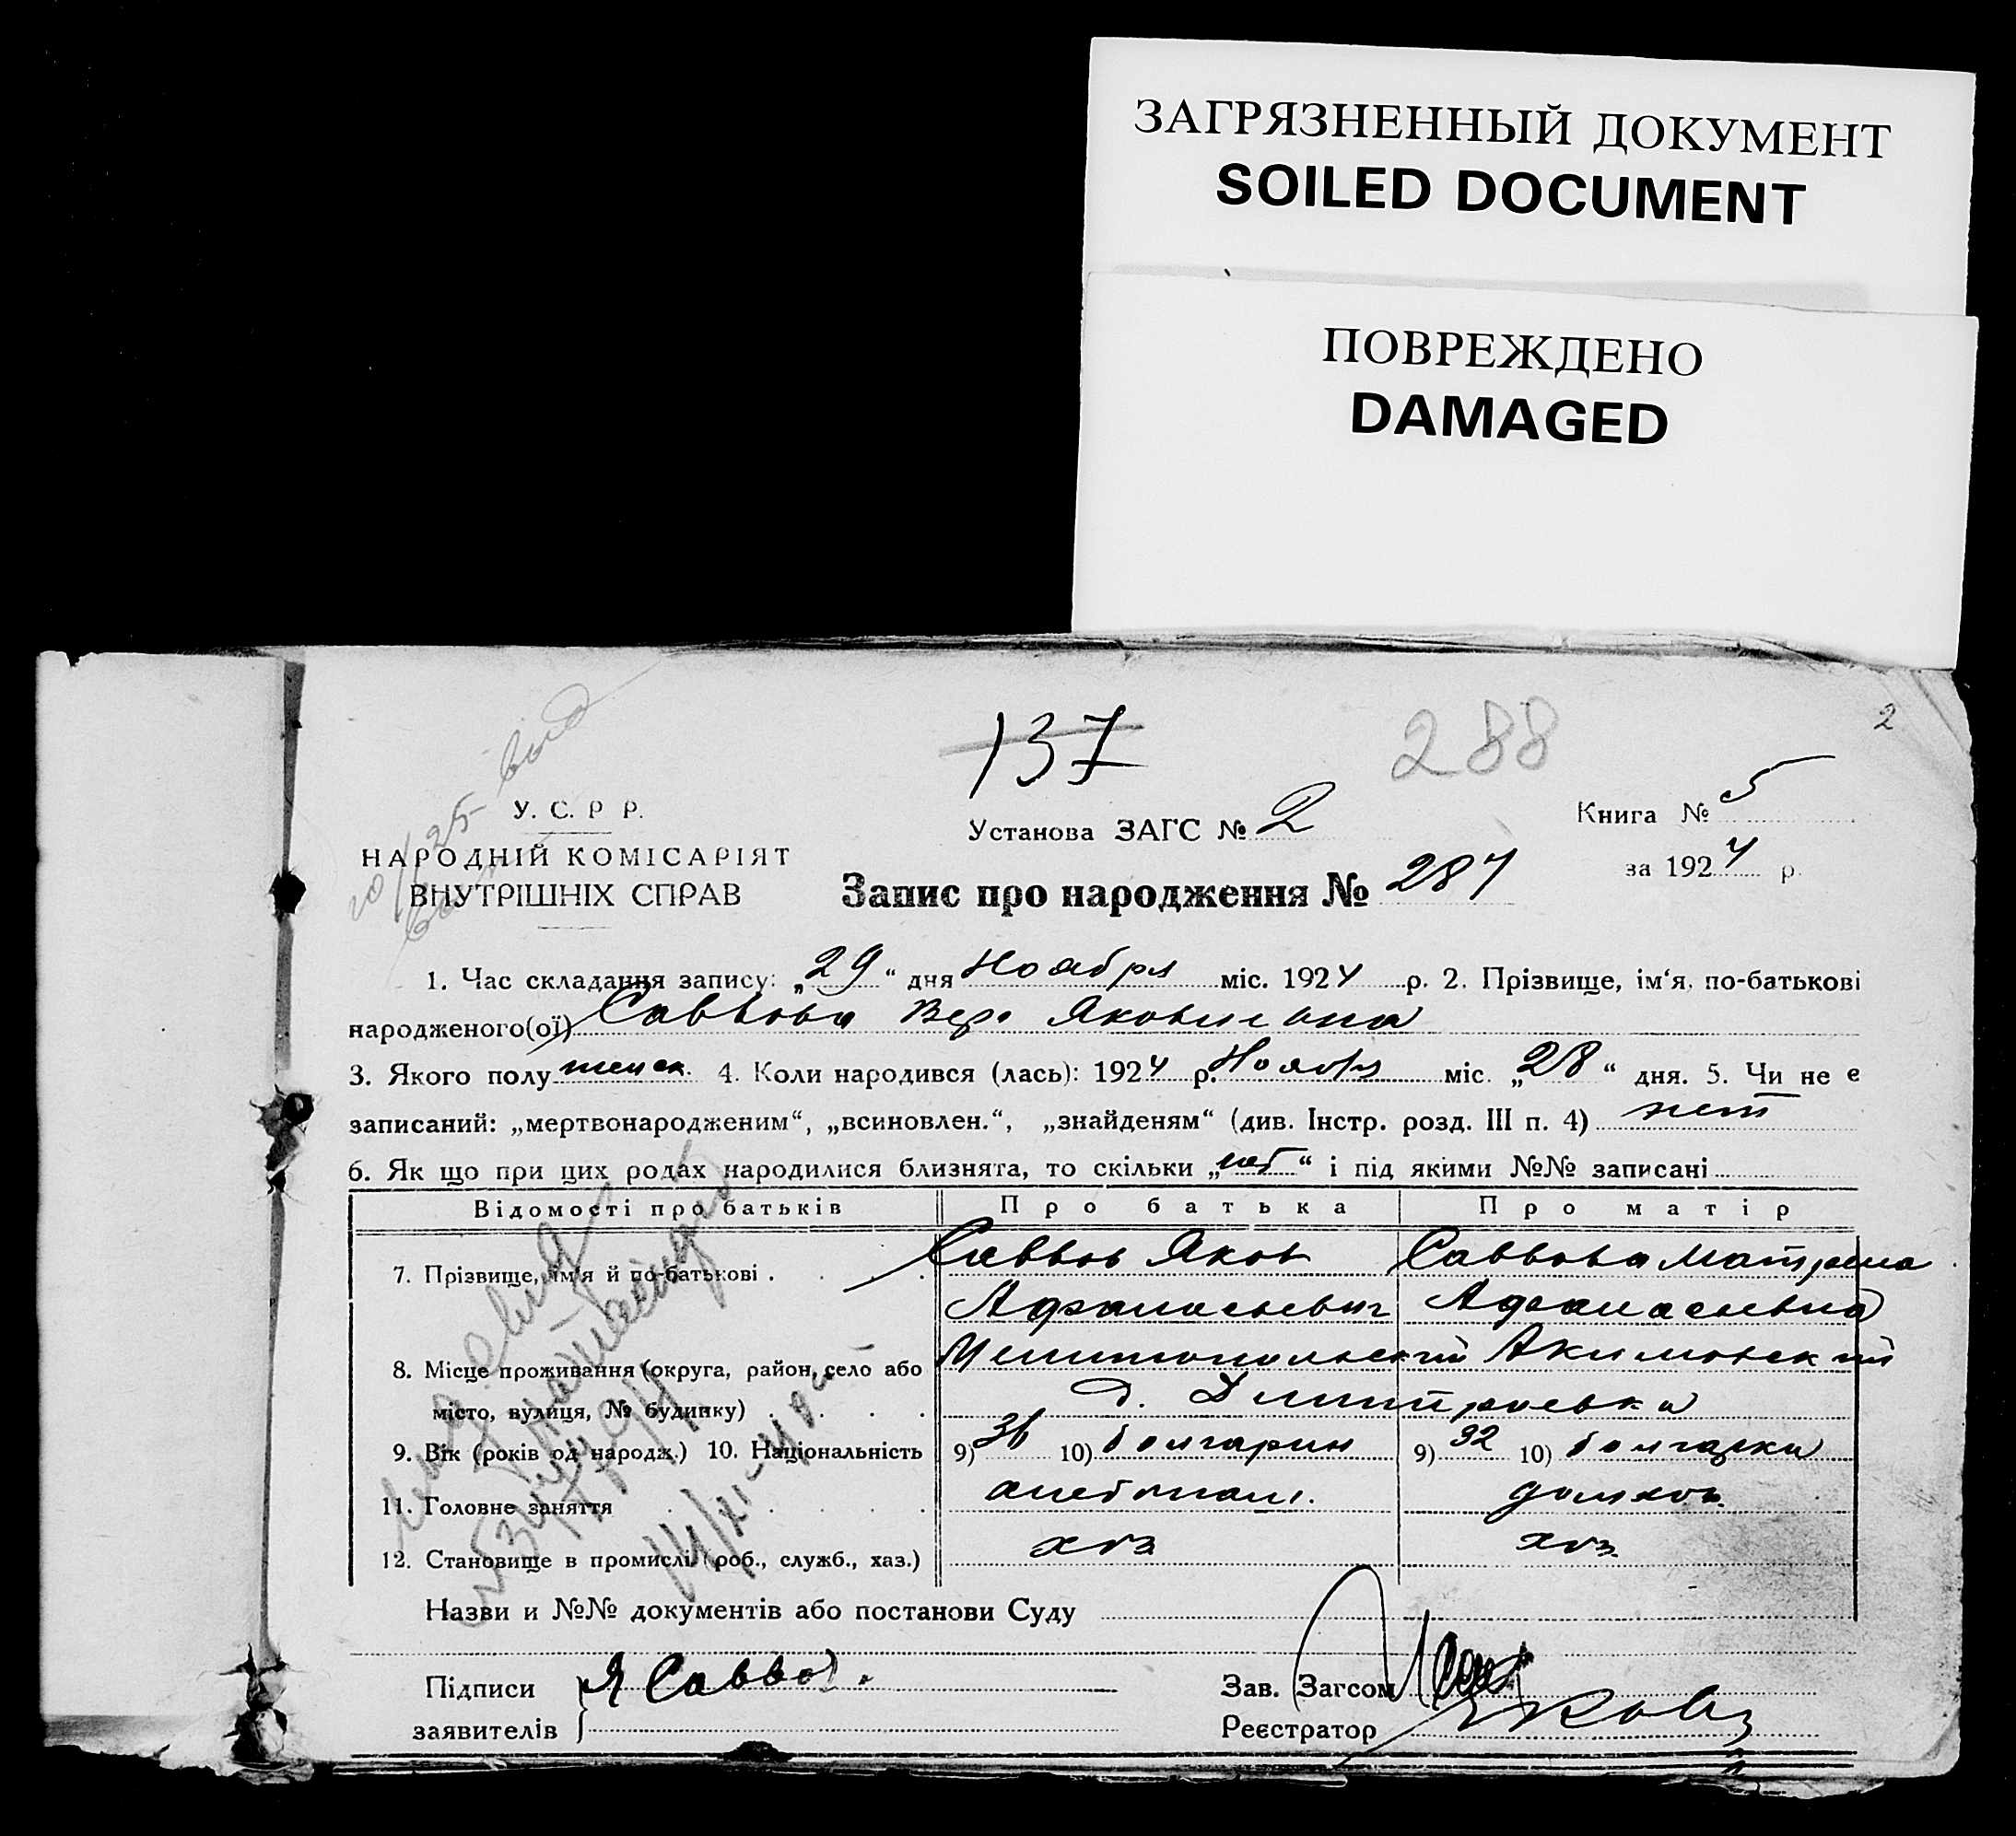 ЗАГРЯЗНЕННЫЙ ДОКУМЕНТ
SOILED DOCUMENT
ПОВРЕЖДЕНО
DAMAGED
137
288
2
У. С. Р Р.
НАРОДНІЙ КОМІСАРІЯТ
ВНУТРІШНІХ СПРАВ
Установа ЗАГС № 2
Книга № 5
за 1924 р.
Запис про народження № 287
1. Час складання запису: „29“ дня Ноября міс. 1924 р. 2. Прізвище, ім‘я, по-батькові
народженого(ої) Саввова Вера Яковлевна
3. Якого полу женск. 4. Коли народився (лась): 1924 р. Ноября міс. „28“ дня. 5. Чи не є
записаний: „мертвонародженим“, „всиновлен.“, „знайденям“ (див. Інстр. розд. III п. 4) нет
6. Як що при цих родах народилися близнята, то скільки „нет“ і під якими №№ записані
Відомості про батьків Про батька Про матір
7. Прізвище, ім‘я й по-батькові . . . . Саввов Яков Саввова Матрена
Афанасьевич Афанасьевна
8. Місце проживання (округа, район, село або Мелитопольский Акимовский
місто, вулиця, № будинку) . . . . д. Дмитровка
9. Вік (років од народж.) 10. Національність 9) 36 10) болгарин 9) 32 10) болгарка
11. Головне заняття . . . . хлебопаш. домхоз.
12. Становище в промислі (роб., служб., хаз.) хоз хоз
Назви и №№ документів або постанови Суду
Підписи Я Саввов.
заявителів
Зав. Загсом
Реєстратор